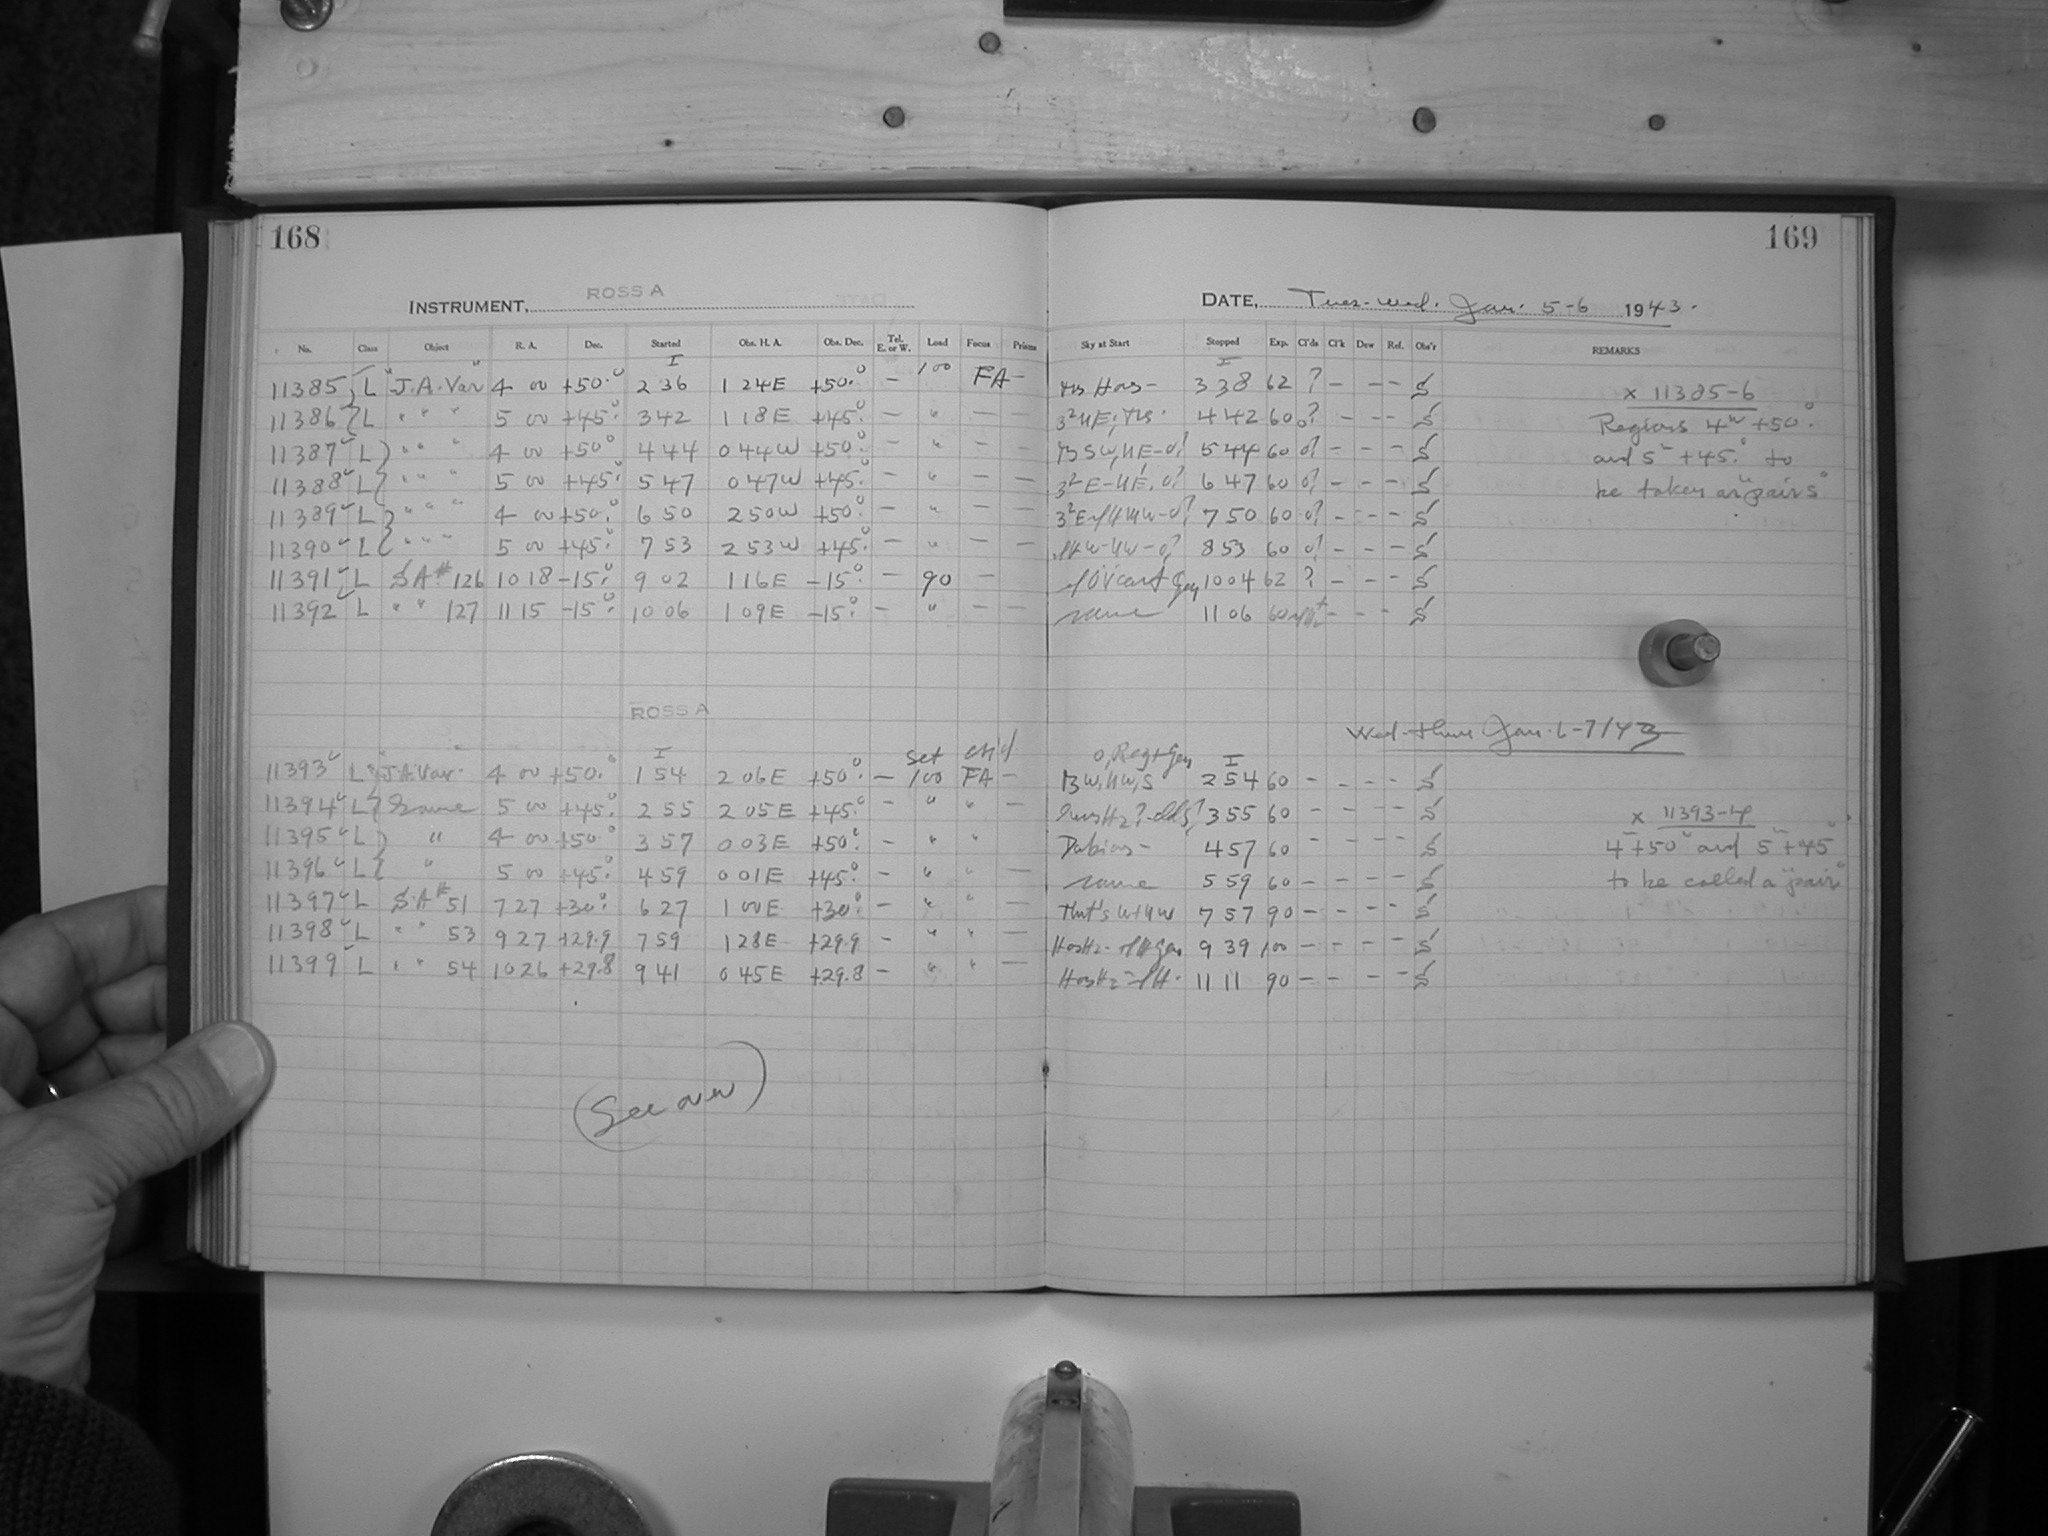 168
169
INSTRUMENT, ROSS A
DATE, Tues-Wed. Jan. 5-6 1943.
No. Class Object R. A. Dec. Started Obs. H. A. Obs. Dec. Tel. E. or W. Load Focus Prism Sky at Start Stopped Exp. Cl'ds Cl'k Dew Ref. Obs'r REMARKS
I 100 I
11385 L "J.A. Var" 4 00 +50.° 2 36 1 24E +50.° — FA — 3 38 62 ? — — — S
11386 L " " " 5 00 +45.° 3 42 1 18E +45.° — " — — 4 42 60 0? — — — S
11387 L " " " 4 00 +50° 4 44 0 44W +50.° — " — — 5 44 60 0? — — — S
11388 L " " " 5 00 +45.° 5 47 0 47W +45.° — " — — 3²E-HE, 0? 6 47 60 0? — — — S
11389 L " " " 4 00 +50.° 6 50 2 50W +50.° — " — — 7 50 60 0? — — — S
11390 L " " " 5 00 +45.° 7 53 2 53W +45.° — " — — 8 53 60 0? — — — S
11391 L SA# 126 10 18 -15.° 9 02 1 16E -15.° — 90 — 10 04 62 ? — — — S
11392 L " " 127 11 15 -15.° 10 06 1 09E -15.° — " — — same 11 06 60 — — — S
x 11385-6
Regions 4ʰ +50.°
and 5ʰ +45.° to
be taken as "pairs"
ROSS A
Wed-Thurs Jan. 6-7/43
I set ch'd 0, Reg+Gen I
11393 L "J.A. Var." 4 00 +50.° 1 54 2 06E +50.° — 100 FA — BW, HW, S 2 54 60 — — — — S
11394 L Same 5 00 +45.° 2 55 2 05E +45.° — " " — 3 55 60 — — — — S
11395 L " 4 00 +50° 3 57 0 03E +50.° — " " Dubious — 4 57 60 — — — — S
11396 L " 5 00 +45.° 4 59 0 01E +45.° — " " — same 5 59 60 — — — — S
11397 L SA# 51 7 27 +30.° 6 27 1 00E +30.° — " " — 7 57 90 — — — — S
11398 L " " 53 9 27 +29.9 7 59 1 28E +29.9 — " " — 9 39 100 — — — — S
11399 L " " 54 10 26 +29.8 9 41 0 45E +29.8 — " " — 11 11 90 — — — — S
x 11393-4
4ʰ +50° and 5ʰ +45°
to be called a "pair"
(See over)